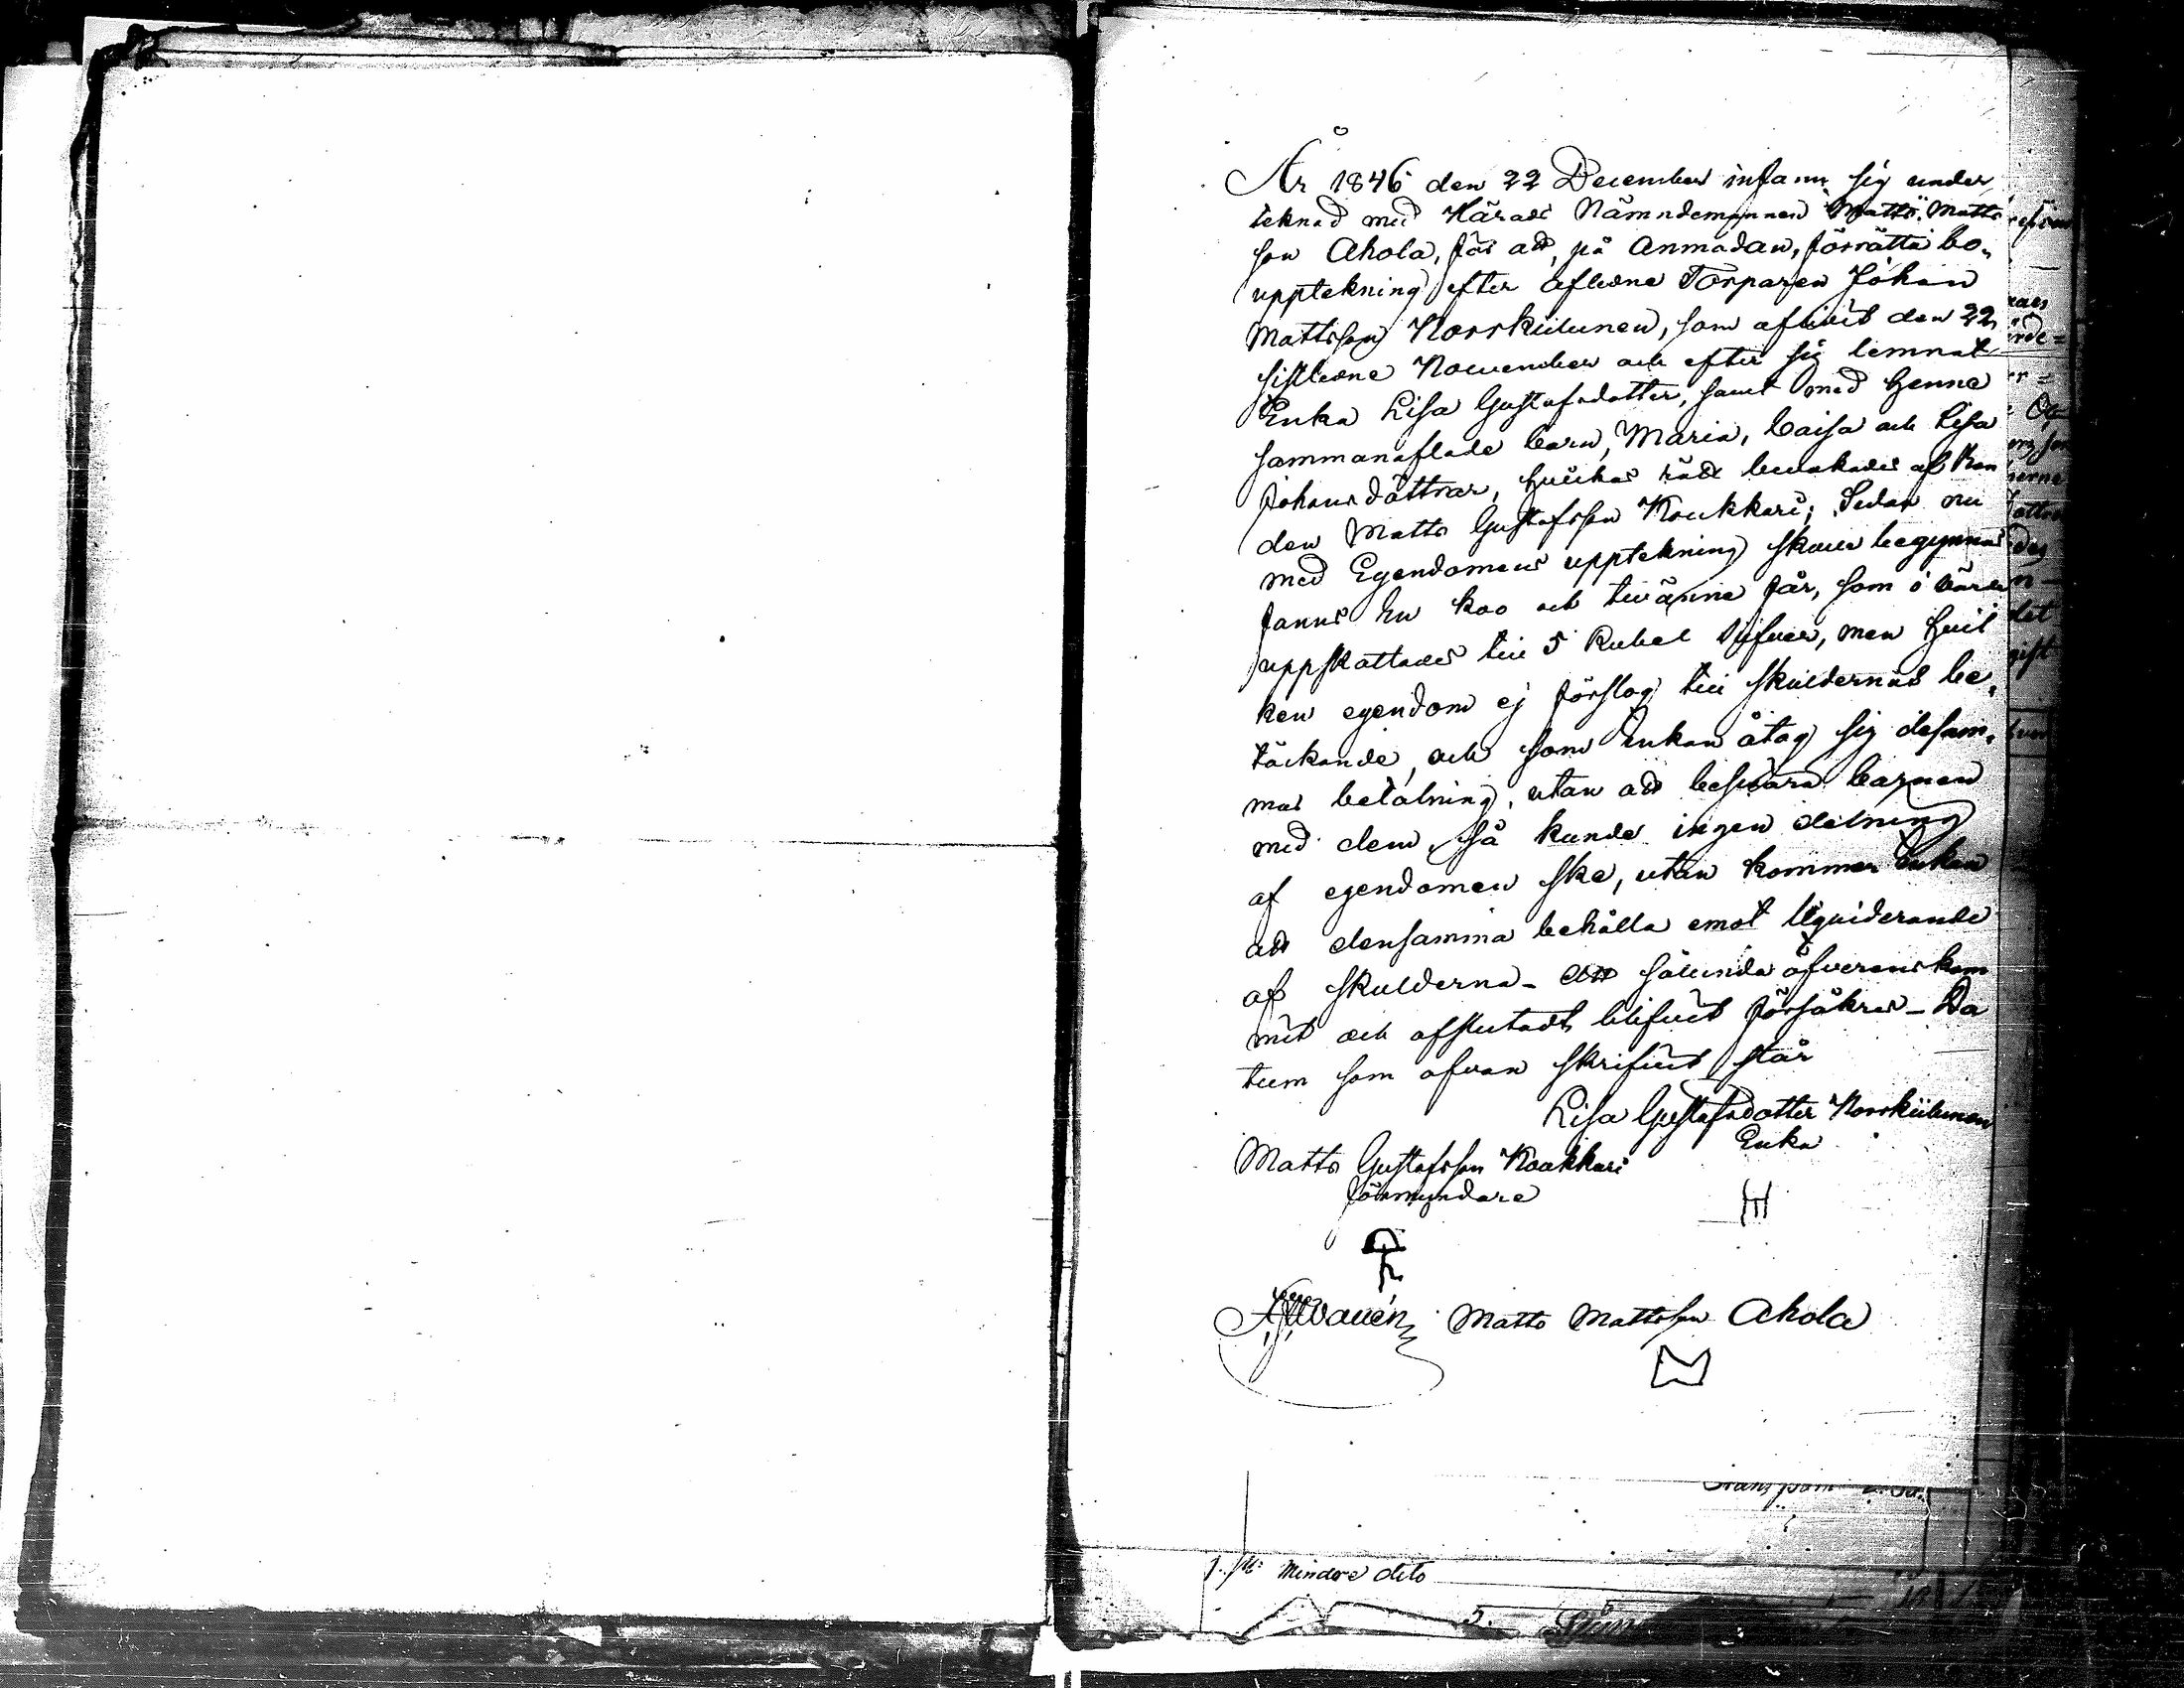 År 1846 den 22 December infann sig under
teknad med Härads Nämndemannen Matts Matts
son Ahola, för att, på anmodan, förrätta bo„
upptekning efter aflidne Torparen Johan
Mattsson Norrkiilunen, som aflidit den 22
sistledne November och efter sig lemnat
Enka Lisa Gustafsdotter, samt med henne
sammanaflade barn, Maria, Caisa och Lisa
Johansdöttrar, hvilkas rätt bevakades af Bon
den Matts Gustafsson Koukkari; Sedan nu
med Egendomens upptekning skulle begynnas
fanns En koo och tvänne får, som i värde
uppskattades till 5 Rubel Silfver, men hvil
ken egendom ej förslog till skuldernas be„
täckande, och som Enkan åtog sig desam„
mas betalning, utan att besvära barnen
med dem, så kunde ingen delning
af egendomen ske, utan kommer Enkan
att densamma behålla emot liquiderande
af skulderna_ Att sålunda öfverenskom
mit och afslutadt blifvit försäkras_ Da
tum som ofvan skrifvit står
Lisa Gustafsdotter Norrkiilunen
Enka
Matts Gustafsson Koukkari
förmyndare
Matts Mattsson Ahola
Mindre dito